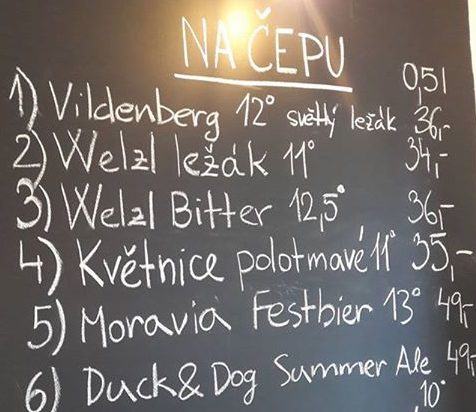 NA ČEPU
0,5l
1) Vildenberg 12° světlý ležák 36,-
2) Welzl ležák 11° 34,-
3) Welzl Bitter 12,5° 36,-
4) Květnice polotmavé 11° 35,-
5) Moravia Festbier 13° 49,-
6) Duck&Dog Summer Ale 49,-
10°